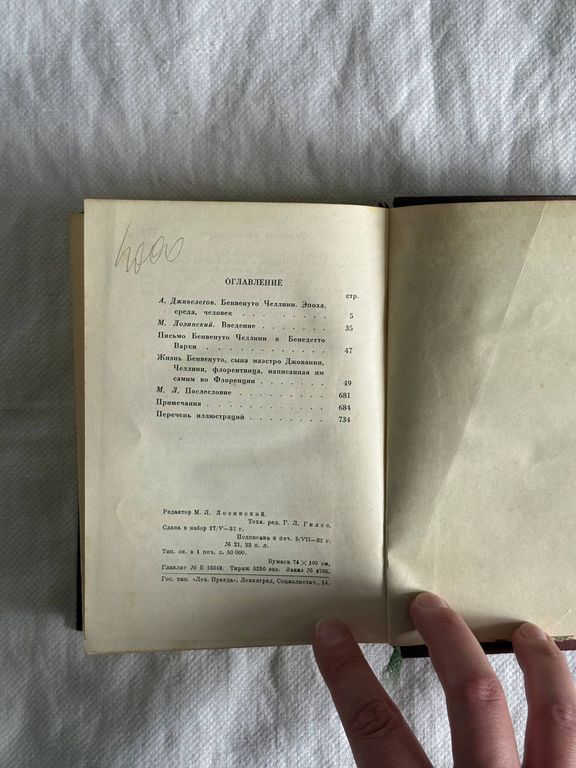 4000
ОГЛАВЛЕНИЕ
стр.
А. Дживелегов. Бенвенуто Челлини. Эпоха,
среда, человек . . . . . . . . 5
М. Лозинский. Введение . . . . . . . . 35
Письмо Бенвенуто Челлини к Бенедетто
Варки . . . . . . . . . . . 47
Жизнь Бенвенуто, сына маэстро Джованни,
Челлини, флорентинца, написанная им
самим во Флоренции . . . . . . . 49
М. Л. Послесловие . . . . . . . . . 681
Примечания . . . . . . . . . . . 684
Перечень иллюстраций . . . . . . . . 734
Редактор М. Л. Лозинский.
Техн. ред. Г. Л. Гилес.
Сдана в набор 27/V—31 г.
Подписана к печ. 5/VII—32 г.
№ 21, 23 п. л.
Тип. зн. в 1 печ. л. 50 000.
Бумага 74 × 105 см.
Главлит № Б 16349. Тираж 5250 экз. Заказ № 4765.
Гос. тип. «Лен. Правда». Ленинград, Социалистич., 14.